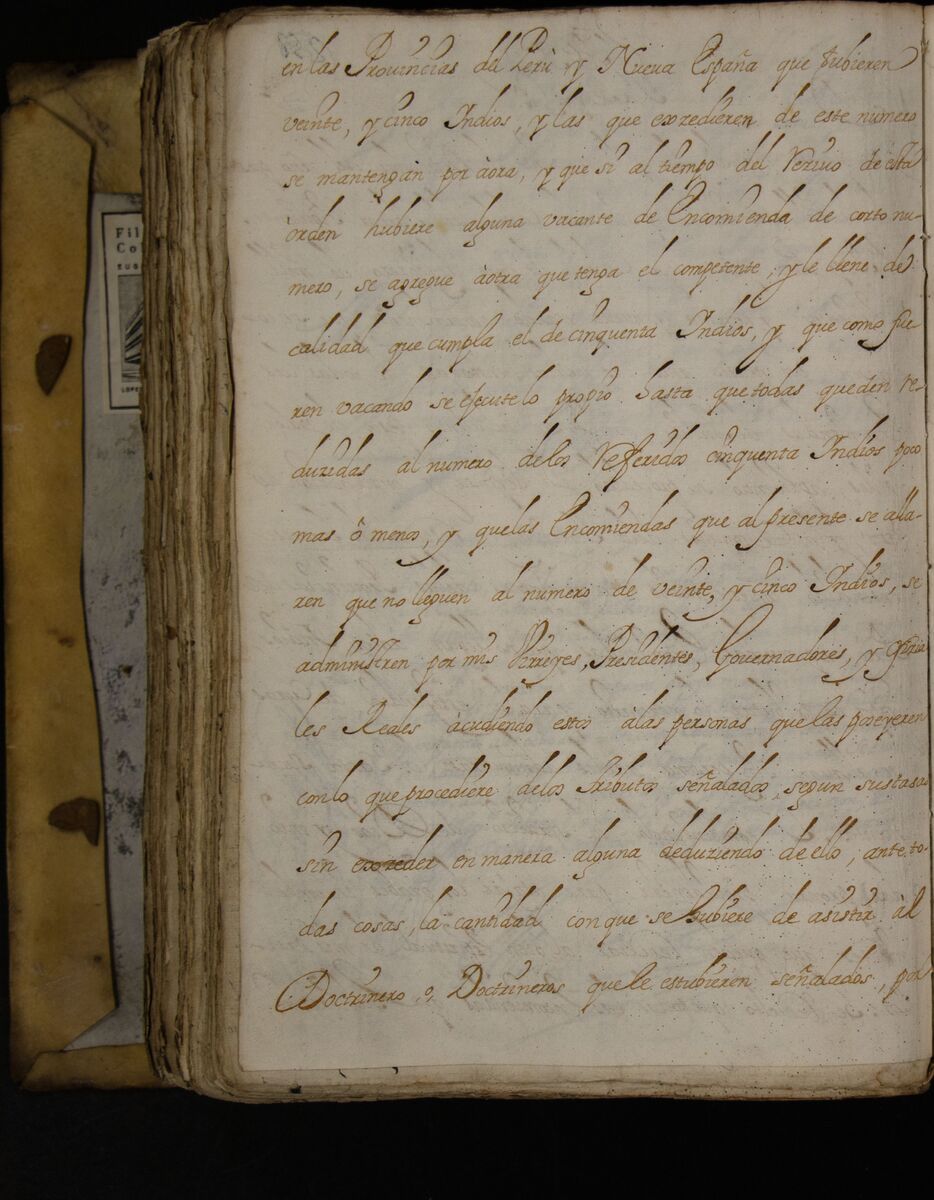 Fil
Co
en las Provincias del Perù y Nueva España que tubieren
veinte, y cinco Indios, y las que exzedieren de este numero
se mantengan por àora, y que si al tiempo del Rezivo de esta
òrden hubiere alguna vacante de Encomienda de corto nu-
mero, se agregue àotra que tenga el competente, y le llene de
calidad que cumpla el de cinquenta Indios, y que como fue
ren vacando se éjecute lo propio hasta que todas queden re-
duzidas al numero delos Refferidos cinquenta Indios poco
mas ô menos, y quelas Encomiendas que al presente se alla-
ren que no lleguen al numero de veinte, y cinco Indios, se
administren por mis Virreyes, Presidentes, Governadores, y Oficia
les Reales àcudiendo estos àlas personas que las poseyeren
conlo que procediere delos Tributos señalados, segun sus tasas
sin exzeder en manera alguna deduziendo de ello, ante to-
das cosas, la cantidad con que se hubiere de asistir àl
Doctrinero, o, Doctrineros que le estubieren señalados, por